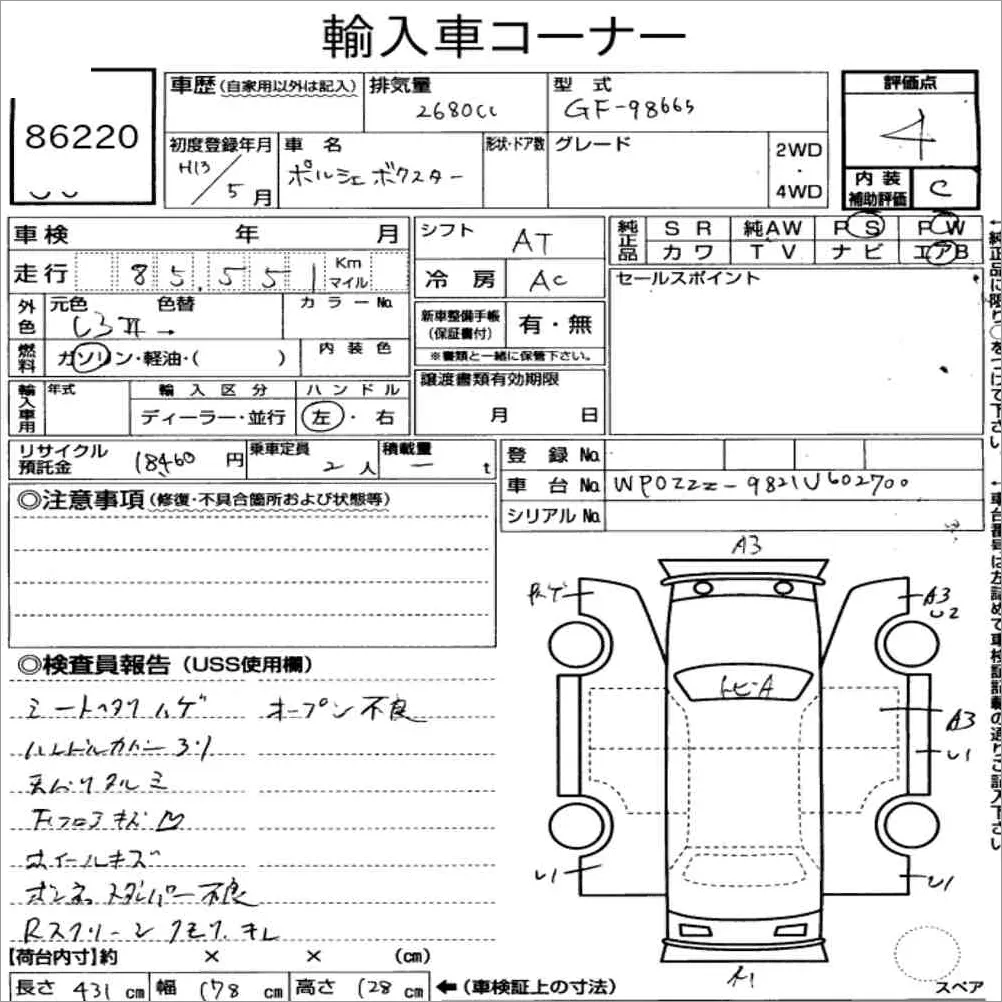 輸入車コーナー
86220
車歴 (自家用以外は記入)
排気量
2680cc
型式
GF-98665
評価点
4
初度登録年月
H13/5月
車名
ポルシェ ボクスター
形状・ドア数
グレード
2WD
・
4WD
内装
補助評価
C
車検 年 月
シフト
AT
純正品
SR 純AW PS PW
カワ TV ナビ エアB
走行 85,551 Km マイル
冷房
AC
セールスポイント
外色
元色 色替 カラーNo.
シロ 元→
新車整備手帳
(保証書付)
有・無
※書類と一緒に保管下さい。
燃料
ガソリン・軽油・( )
内装色
輸入車用
年式
輸入区分
ディーラー・並行
ハンドル
左・右
譲渡書類有効期限
月 日
リサイクル
預託金
18460円
乗車定員
2人
積載量
ー t
登録No.
車台No. WP0ZZZ-9821U602700
シリアルNo.
◎注意事項 (修復・不具合箇所および状態等)
A3
A3
U2
トビ・A
A3
U1
U1
U1
A1
◎検査員報告 (USS使用欄)
オープン不良
ホイールキズ
ダンパー不良
Rスクリーン クモリ、キレ
【荷台内寸】約 × × (cm)
長さ 431 cm 幅 178 cm 高さ 128 cm ←(車検証上の寸法)
スペア
←純正品に限り○をつけて下さい。
←車台番号は左詰めで車検証記載の通りご記入下さい。